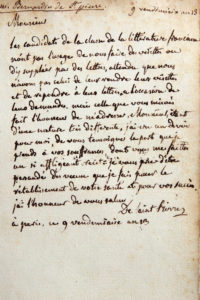 9 vendemiaire an 13
Monsieur
les candidats de la classe de la littérature francaise
n'ont pas l'usage de nous faire de visites ou
d'y suppléer par des lettres, attendu que nous
n'avons pas celui de leur rendre leurs visites
et de répondre à leurs lettres, à l'occasion de
leur demande, mais celle que vous m'avez
fait l'honneur de m'adresser, Monsieur, étant
d'une nature très differente, j'ai cru un devoir
pour moi, de vous temoigner la part que je
prends à vos souffrances dont vous me faites
un si affligeant récit. je vous prie d'être
persuadé des vœux que je fais pour le
rétablissement de votre santé et pour vos succès
j'ai l'honneur de vous saluer
De Saint Pierre
à paris, ce 9 vendemiaire an 13